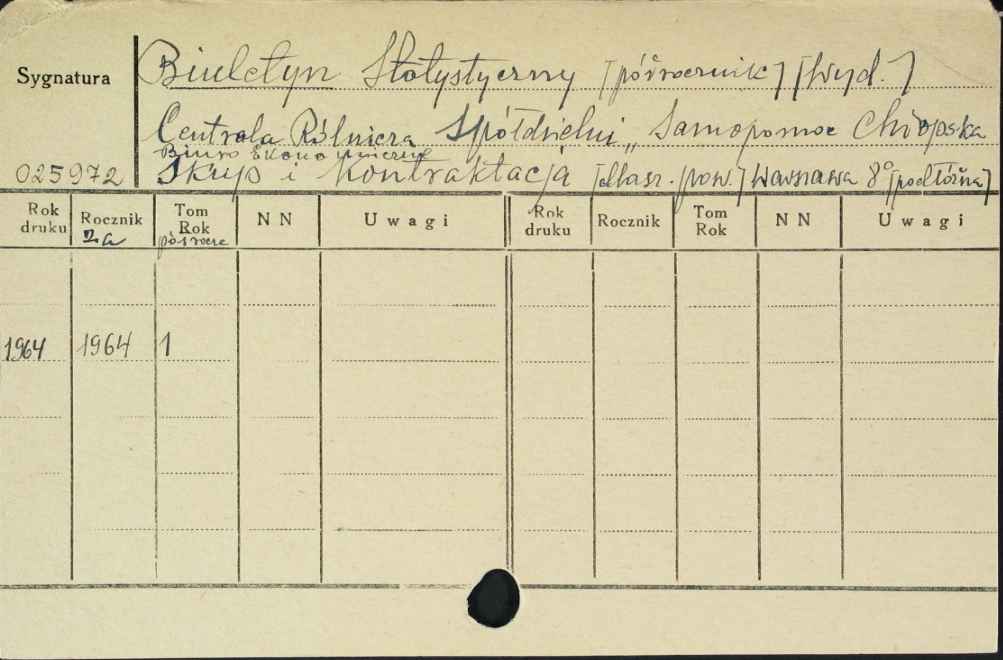 Sygnatura
Biuletyn Statystyczny [półrocznik] [Wyd.]
Centrala Rólnicza Spółdzielni „Samopomoc Chłopska
Biuro Ekonomiczne
025972
Skup i Kontraktacja [Masz. pow.] Warszawa 8° [podłużna]
Rok druku Rocznik za Tom Rok półrocze NN Uwagi Rok druku Rocznik Tom Rok NN Uwagi
1964 1964 1